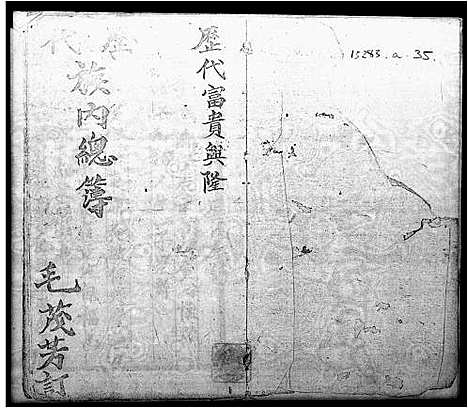 15283.a.35.
歷代富貴興隆
歷代
族內總簿
毛茂芳訂